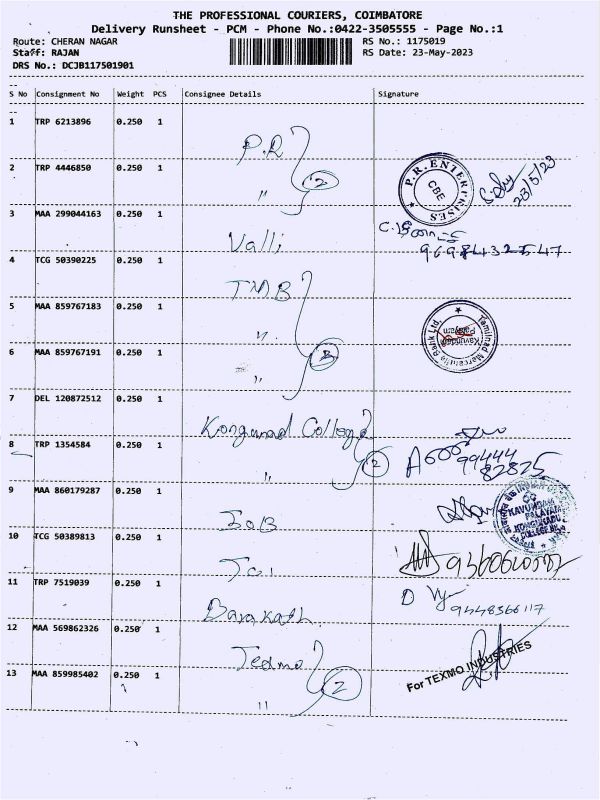 THE PROFESSIONAL COURIERS, COIMBATORE
Delivery Runsheet - PCM - Phone No.:0422-3505555 - Page No.:1
Route: CHERAN NAGAR
RS No.: 1175019
Staff: RAJAN
RS Date: 23-May-2023
DRS No.: DCJB117501901
S No Consignment No Weight PCS Consignee Details Signature
1 TRP 6213896 0.250 1 P.R
2 TRP 4446850 0.250 1 " 2 P.R. ENTERPRISES CBE 23/5/23
3 MAA 299044163 0.250 1 Valli 9698432547
4 TCG 50390225 0.250 1 TMB
5 MAA 859767183 0.250 1 " Tamilnad Mercantile Bank Ltd.
6 MAA 859767191 0.250 1 " 3
7 DEL 120872512 0.250 1 Kongunad College
8 TRP 1354584 0.250 1 " 2 99444 82825
9 MAA 860179287 0.250 1 I.O.B KAVUNDAM PALAYAM
10 TCG 50389813 0.250 1
11 TRP 7519039 0.250 1 Barakath 9448366117
12 MAA 569862326 0.250 1 Texmo
13 MAA 859985402 0.250 1 " 2 For TEXMO INDUSTRIES